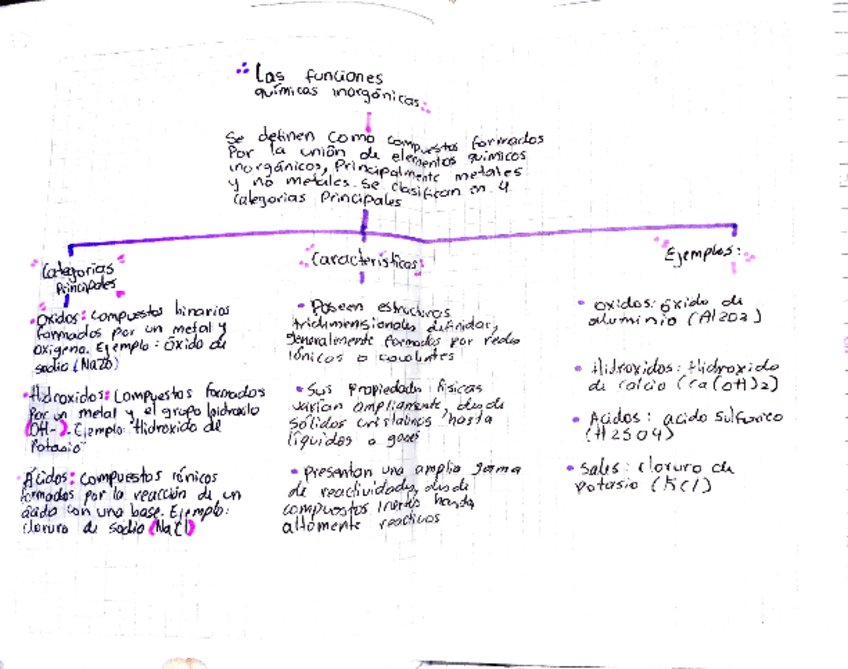 Las funciones
químicas inorgánicas:
Se definen como compuestos formados
Por la unión de elementos químicos
inorgánicos, Principalmente metales
y no metales. Se clasifican en 4
Categorias Principales
Categorias
Principales
Oxidos: compuestos binarios
formados por un metal y
oxigeno. Ejemplo: óxido de
sodio (Na2O)
Hidroxidos: Compuestos formados
Por un metal y el grupo hidroxilo
(OH-). Ejemplo: "Hidroxido de
Potasio"
Ácidos: compuestos iónicos
formados por la reacción de un
ácido con una base. Ejemplo:
cloruro de sodio (NaCl)
Caracteristicas:
• Poseen estructuras
tridimensionales definidas,
generalmente formados por redes
iónicas o covalentes
• Sus propiedades físicas
varían ampliamente, desde
sólidos cristalinos hasta
líquidos o gases
• presentan una amplia gama
de reactividades, desde
compuestos inertes hasta
altamente reactivos
Ejemplos:
• oxidos: óxido de
aluminio (Al2O3)
• Hidroxidos: Hidroxido
de calcio (Ca(OH)2)
• Acidos: acido sulfurico
(H2SO4)
• Sales: cloruro de
potasio (KCl)